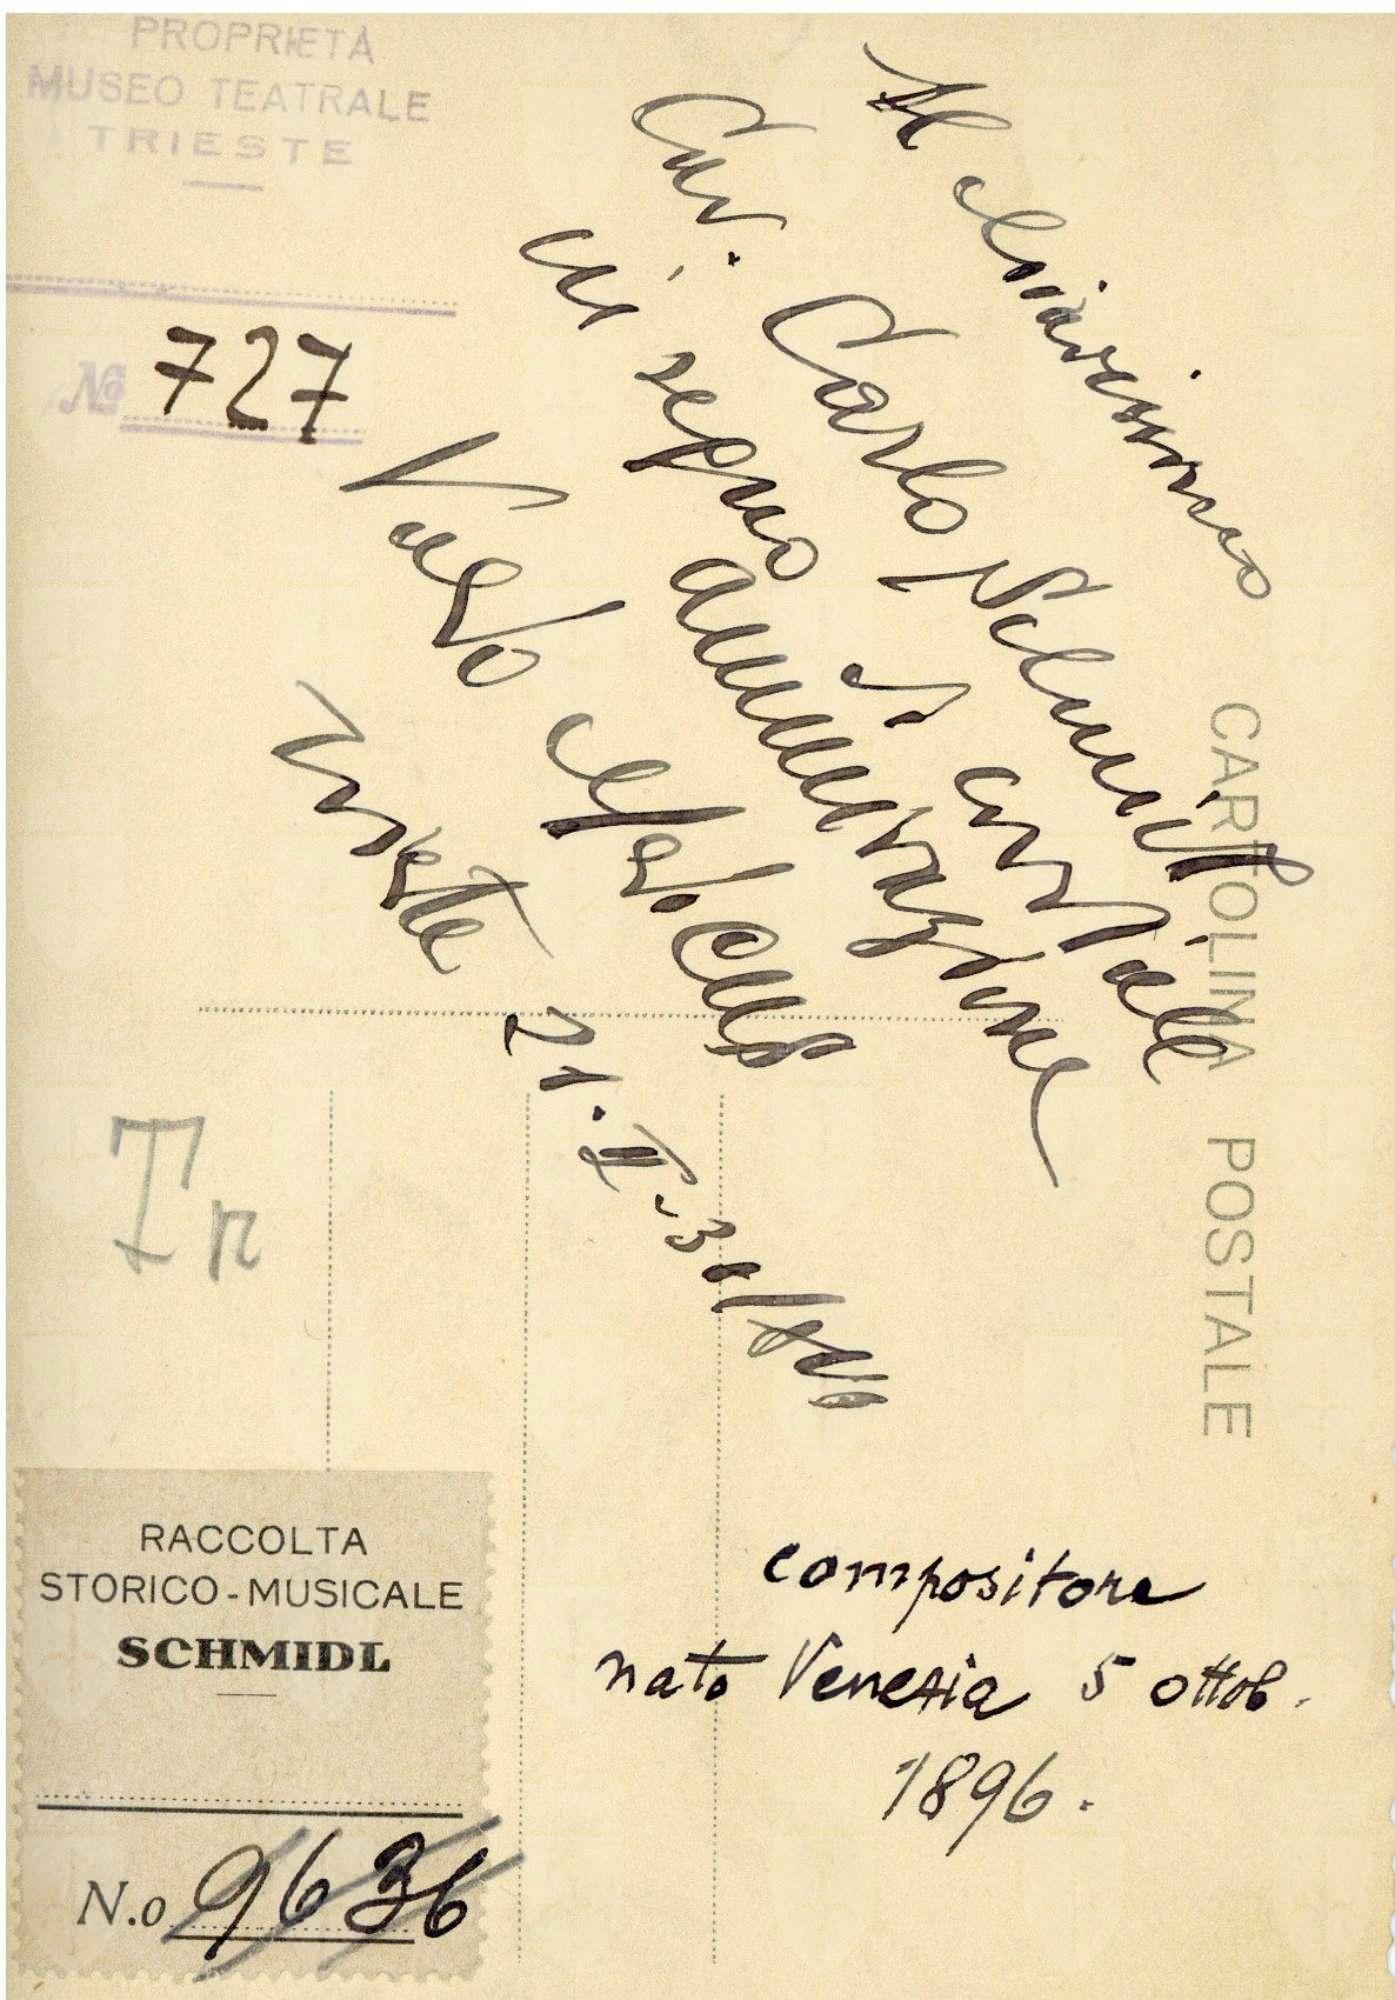 PROPRIETÀ
MUSEO TEATRALE
TRIESTE
№ 727
Al chiarissimo
Cav. Carlo Schmidl
in segno di cordiale
ammirazione
Trieste 21.II.30/VIII
CARTOLINA POSTALE
Tr
RACCOLTA
STORICO-MUSICALE
SCHMIDL
N.o 9636
compositore
nato Venezia 5 ottob.
1896.